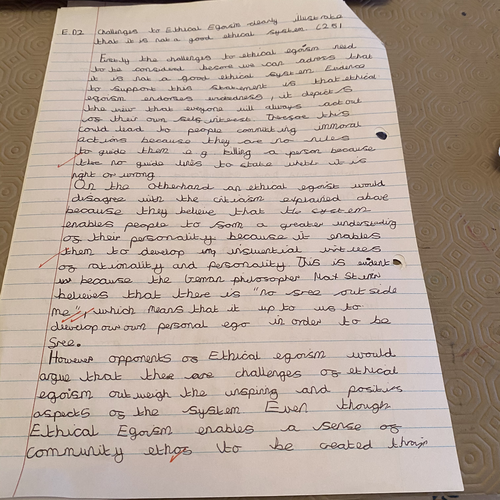 E.D2 Challenges to Ethical Egoism clearly illustrate
that it is not a good ethical system (25)
Firstly the challenges to ethical egoism need
to be considered before we can adress that
it is not a good ethical system Evidence
to support this statement is that ethical
egoism endorses wickedness, it depicts
the view that everyone will always act out
of their own self interest. Therefore this
could lead to people committing immoral
actions because they are no rules
to guide them e.g killing a person because
the no guide lines to state what it is
right or wrong
On the otherhand an ethical egoist would
disagree with the critcism explained above
because they believe that the system
enables people to form a greater understanding
of their personality because it enables
them to develop influential virtues
of rationality and personality This is evident
because the German philosopher Max Stirner
believes that there is "no free out side
me", which means that it up to us to
develop our own personal ego in order to be
free.
However opponents of Ethical egoism would
argue that there are challenges of ethical
egoism outweigh the inspiring and positive
aspects of the system Even though
Ethical Egoism enables a sense of
community ethos to be created through